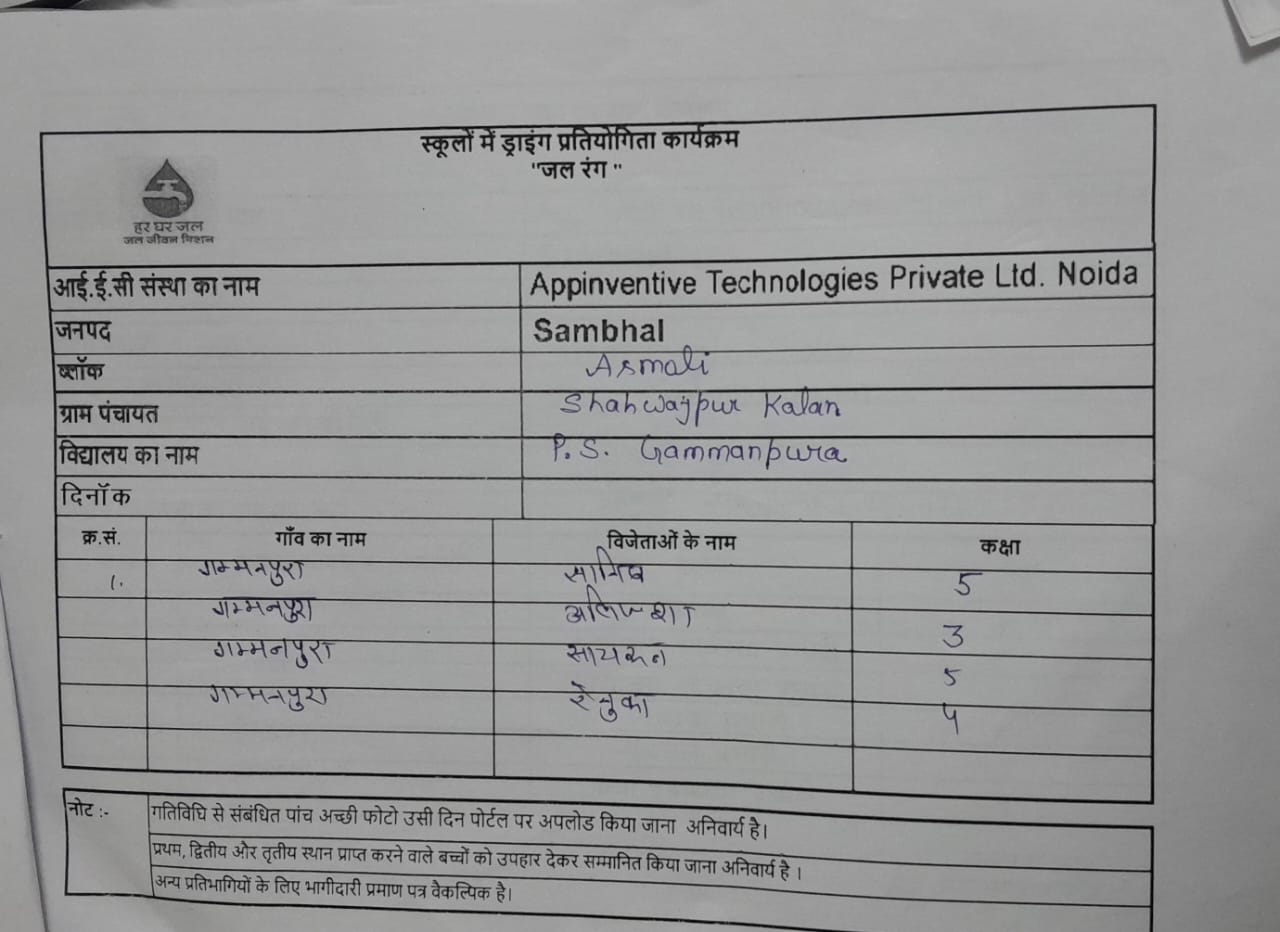 स्कूलों में ड्राइंग प्रतियोगिता कार्यक्रम
"जल रंग "
हर घर जल
जल जीवन मिशन
आई.ई.सी संस्था का नाम Appinventive Technologies Private Ltd. Noida
जनपद Sambhal
ब्लॉक Asmoli
ग्राम पंचायत Shahwajpur Kalan
विद्यालय का नाम P.S. Gammanpura
दिनॉक
क्र.सं. गाँव का नाम विजेताओं के नाम कक्षा
1. गम्मनपुरा 5
गम्मनपुरा 3
गम्मनपुरा 5
गम्मनपुरा रेनुका
नोट :- गतिविधि से संबंधित पांच अच्छी फोटो उसी दिन पोर्टल पर अपलोड किया जाना अनिवार्य है।
प्रथम, द्वितीय और तृतीय स्थान प्राप्त करने वाले बच्चों को उपहार देकर सम्मानित किया जाना अनिवार्य है ।
अन्य प्रतिभागियों के लिए भागीदारी प्रमाण पत्र वैकल्पिक है।